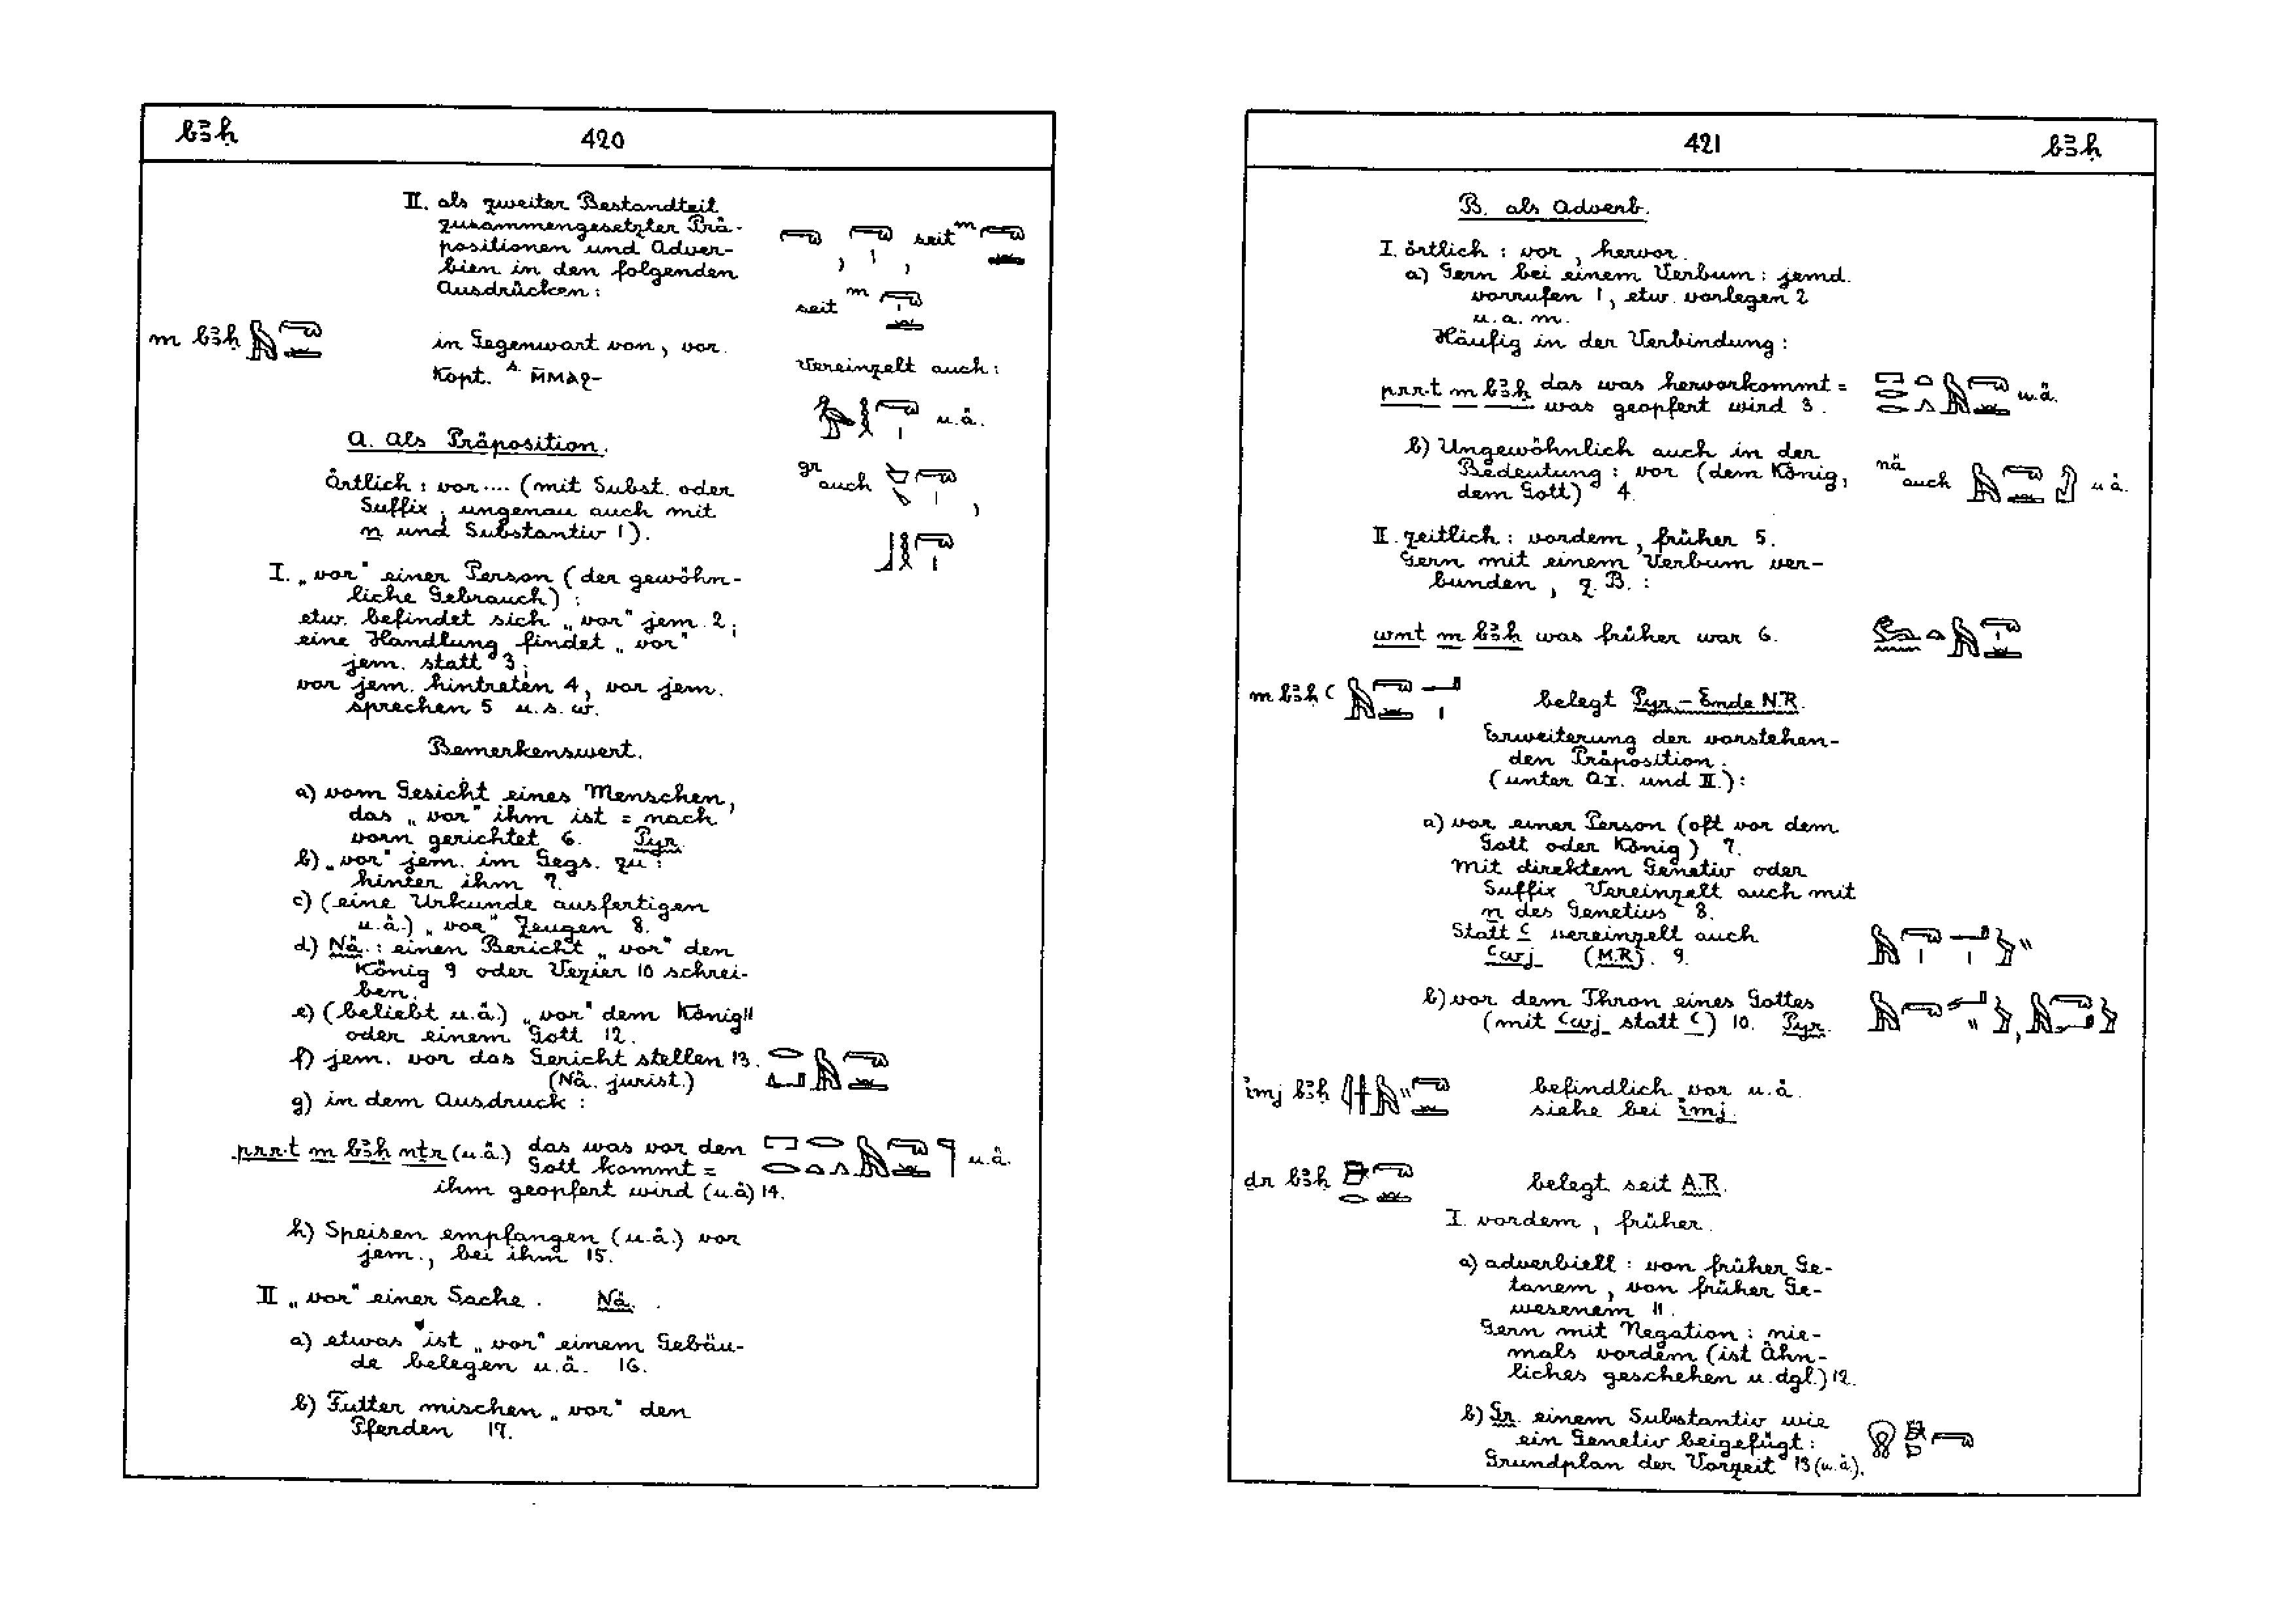 bꜣḥ
420
II. als zweiter Bestandteil
zusammengesetzter Prä-
positionen und Adver-
bien in den folgenden
Ausdrücken:
seit m
seit m
m bꜣḥ in Gegenwart von, vor.
Kopt. A. M̄ΜΑϨ-
Vereinzelt auch:
u.ä.
A. als Präposition.
gr auch
Örtlich: vor .... (mit Subst. oder
Suffix; ungenau auch mit
n und Substantiv 1).
I. „vor" einer Person (der gewöhn-
liche Gebrauch):
etw. befindet sich „vor" jem. 2;
eine Handlung findet „vor"
jem. statt 3;
vor jem. hintreten 4, vor jem.
sprechen 5 u.s.w.
Bemerkenswert.
a) vom Gesicht eines Menschen,
das „vor" ihm ist = nach
vorn gerichtet 6. Pyr.
b) „vor" jem. im Gegs. zu:
hinter ihm 7.
c) (eine Urkunde ausfertigen
u.ä.) „vor" Zeugen 8.
d) Nä.: einen Bericht „vor" den
König 9 oder Vezier 10 schrei-
ben.
e) (beliebt u.ä.) „vor" dem König 11
oder einem Gott 12.
f) jem. vor das Gericht stellen 13.
(Nä. jurist.)
g) in dem Ausdruck:
prr·t m bꜣḥ nṯr (u.ä.) das was vor den u.ä.
Gott kommt =
ihm geopfert wird (u.ä) 14.
h) Speisen empfangen (u.ä.) vor
jem., bei ihm 15.
II „vor" einer Sache. Nä.
a) etwas ist „vor" einem Gebäu-
de belegen u.ä. 16.
b) Futter mischen „vor" den
Pferden 17.
421
bꜣḥ
B. als Adverb.
I. örtlich: vor, hervor.
a) Gern bei einem Verbum: jemd.
vorrufen 1, etw. vorlegen 2
u.a.m.
Häufig in der Verbindung:
prr·t m bꜣḥ das was hervorkommt = u.ä.
was geopfert wird 3.
b) Ungewöhnlich auch in der
Bedeutung: vor (dem König,
dem Gott) 4.
nä auch u.ä.
II. zeitlich: vordem, früher 5.
Gern mit einem Verbum ver-
bunden, z.B.:
wnt m bꜣḥ was früher war 6.
m bꜣḥ ꜥ belegt Pyr. – Ende N.R.
Erweiterung der vorstehen-
den Präposition.
(unter A I. und II.):
a) vor einer Person (oft vor dem
Gott oder König) 7.
Mit direktem Genetiv oder
Suffix Vereinzelt auch mit
n des Genetivs 8.
Statt ꜥ vereinzelt auch
ꜥwj (M.R). 9.
b) vor dem Thron eines Gottes
(mit ꜥwj statt ꜥ) 10. Pyr.
imj bꜣḥ befindlich vor u.ä.
siehe bei imj.
ḏr bꜣḥ belegt seit A.R.
I. vordem, früher.
a) adverbiell: von früher Ge-
tanem, von früher Ge-
wesenem 11.
Gern mit Negation: nie-
mals vordem (ist Ähn-
liches geschehen u.dgl.) 12.
b) Gr. einem Substantiv wie
ein Genetiv beigefügt:
Grundplan der Vorzeit 13 (u.ä.).